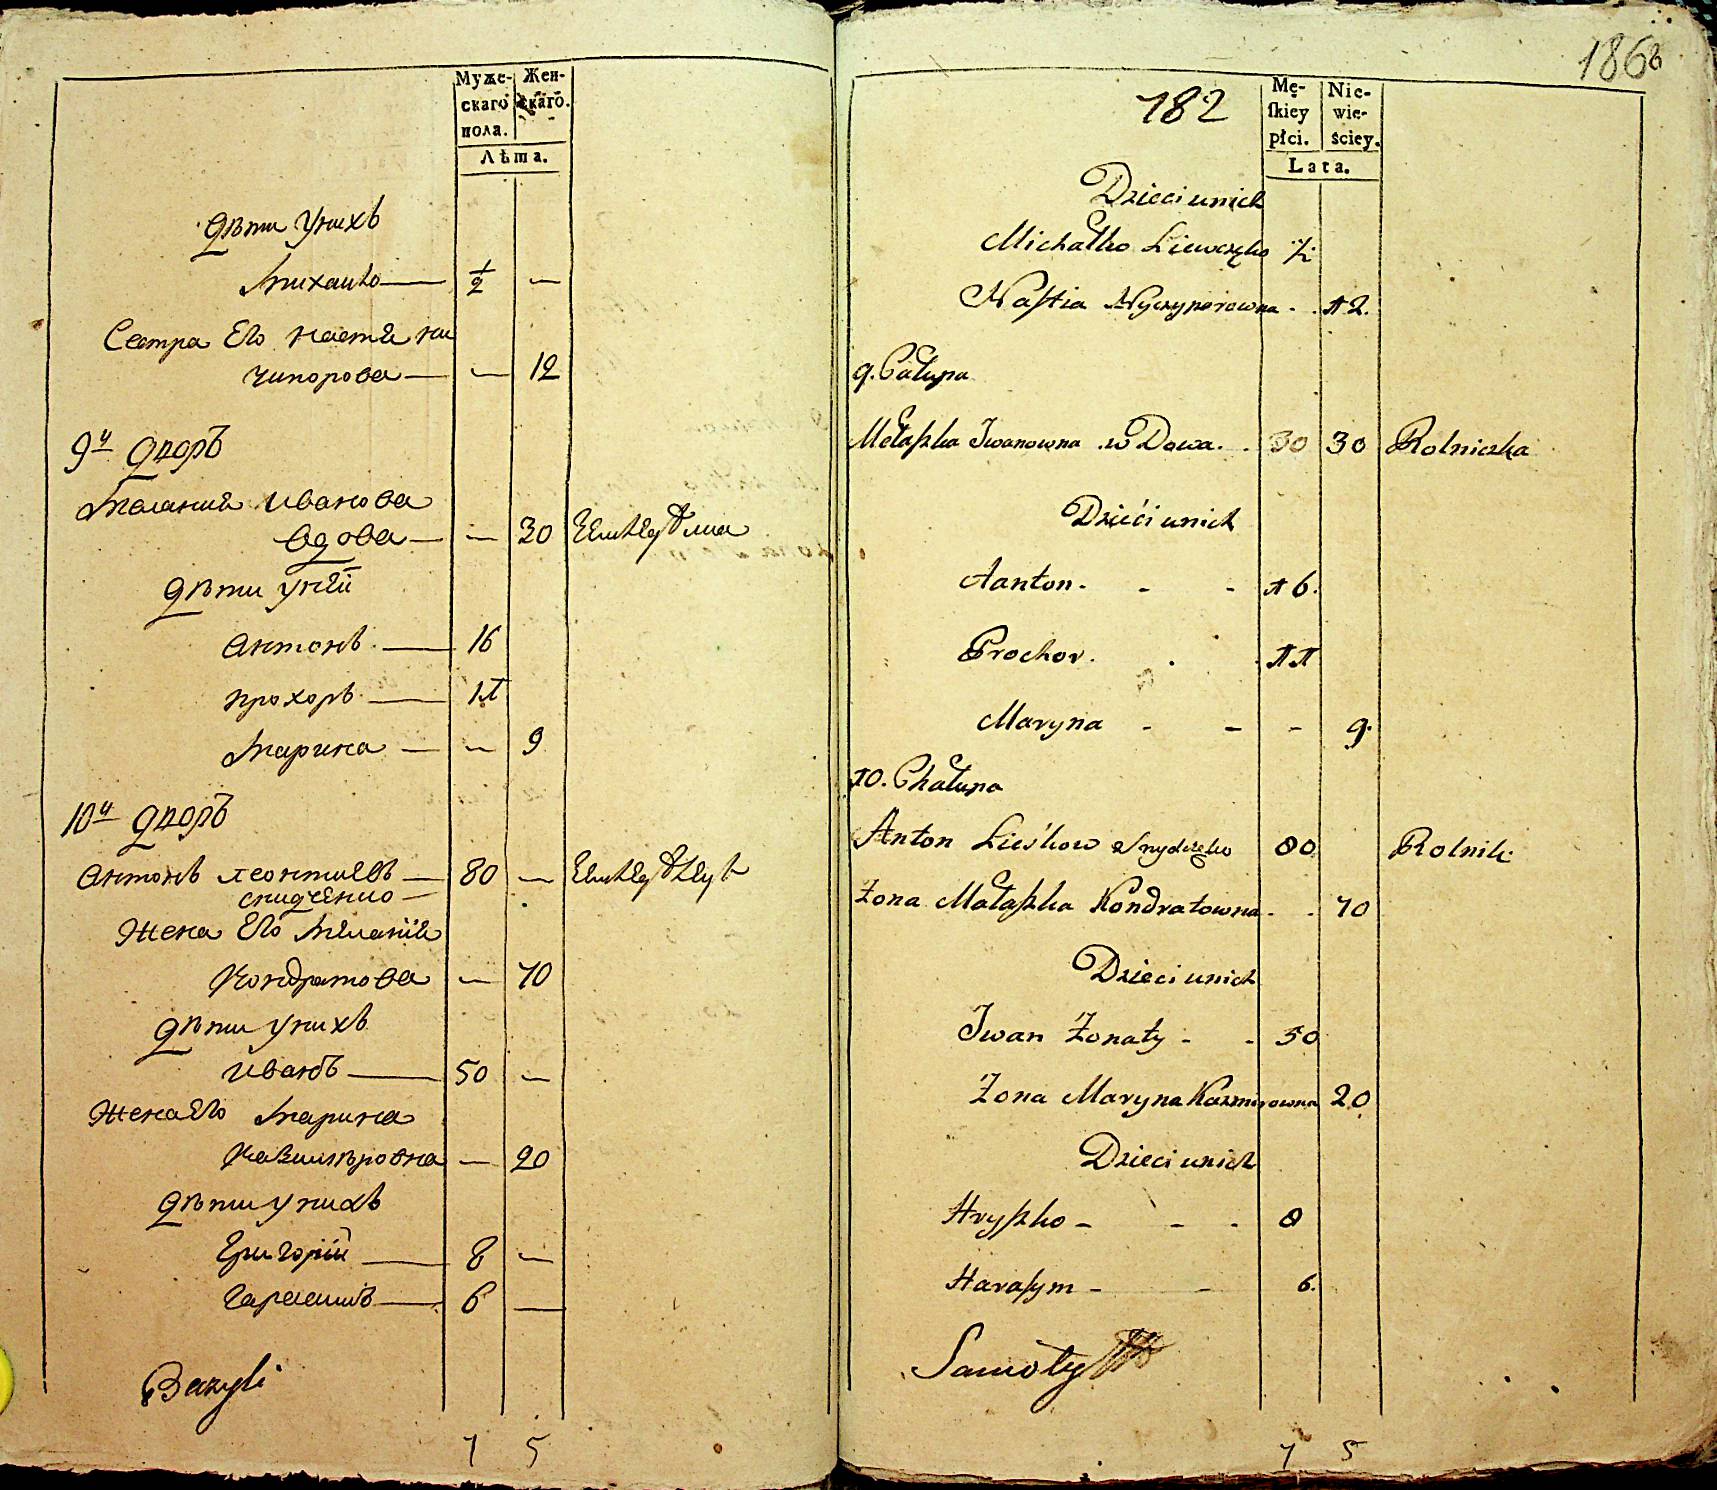 Муже-
скаго
пола.
Жен-
скаго.
Лѣта.
дѣти унихъ
Михайло — ½ —
Сестра Его настя ни
чипорова — — 12
9й дворъ
Малания иванова
вдова — — 30
дѣти уней
Антонъ — 16
прохоръ — 11
Марина — — 9
10й дворъ
Антонъ леонтиевъ — 80 —
снидченко —
Жена Его Меланiя
Кондратова — 70
дѣти унихъ
иванъ — 50 —
Жена Его Марина
Казимировна — 20
дѣти унихъ
Григорiй — 8 —
Гарасимъ — 6 —
Bazyli
7 5
186
182
Mę-
skiey
płci.
Nie-
wie-
ściey.
Lata.
Dzieci unich
Michałko ½
Nastia Nyczyporowna - . 12.
9. Całupa
Mełaszka Iwanowna . w Dowa. . 30 30 Rolniczka
Dzieci unich
Aanton - - - 16.
Prochor . . . 11
Maryna - - - 9.
10. Chałupa
Anton Lieśkow Snydczęko 80 Rolnik
Żona Małaszka Kondratowna - . 70
Dzieci unich
Iwan Żonaty - - 50
Żona Maryna Kazmirowna 20
Dzieci unich
Hryszko - - - 8
Harasym - - 6.
Samoty
7 5